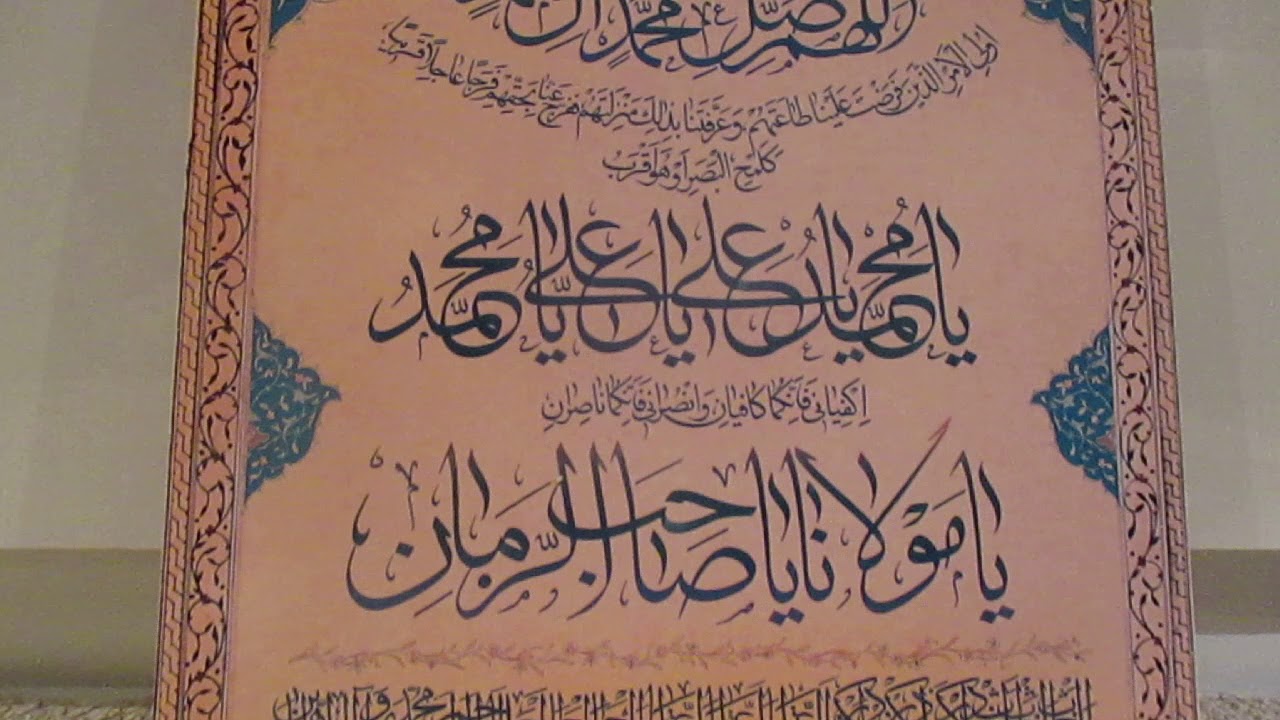 اللهم صل محمد آل
اولی الامر الذین فرضت علینا طاعتهم وعرفتنا بذلک منزلتهم ففرج عنا بحقهم فرجا عاجلا قریبا
کلمح البصر اوهو اقرب
یا محمد یا علی یا علی یا محمد
اکفیانی فانکما کافیان وانصرانی فانکما ناصران
یا مولانا یا صاحب الزمان